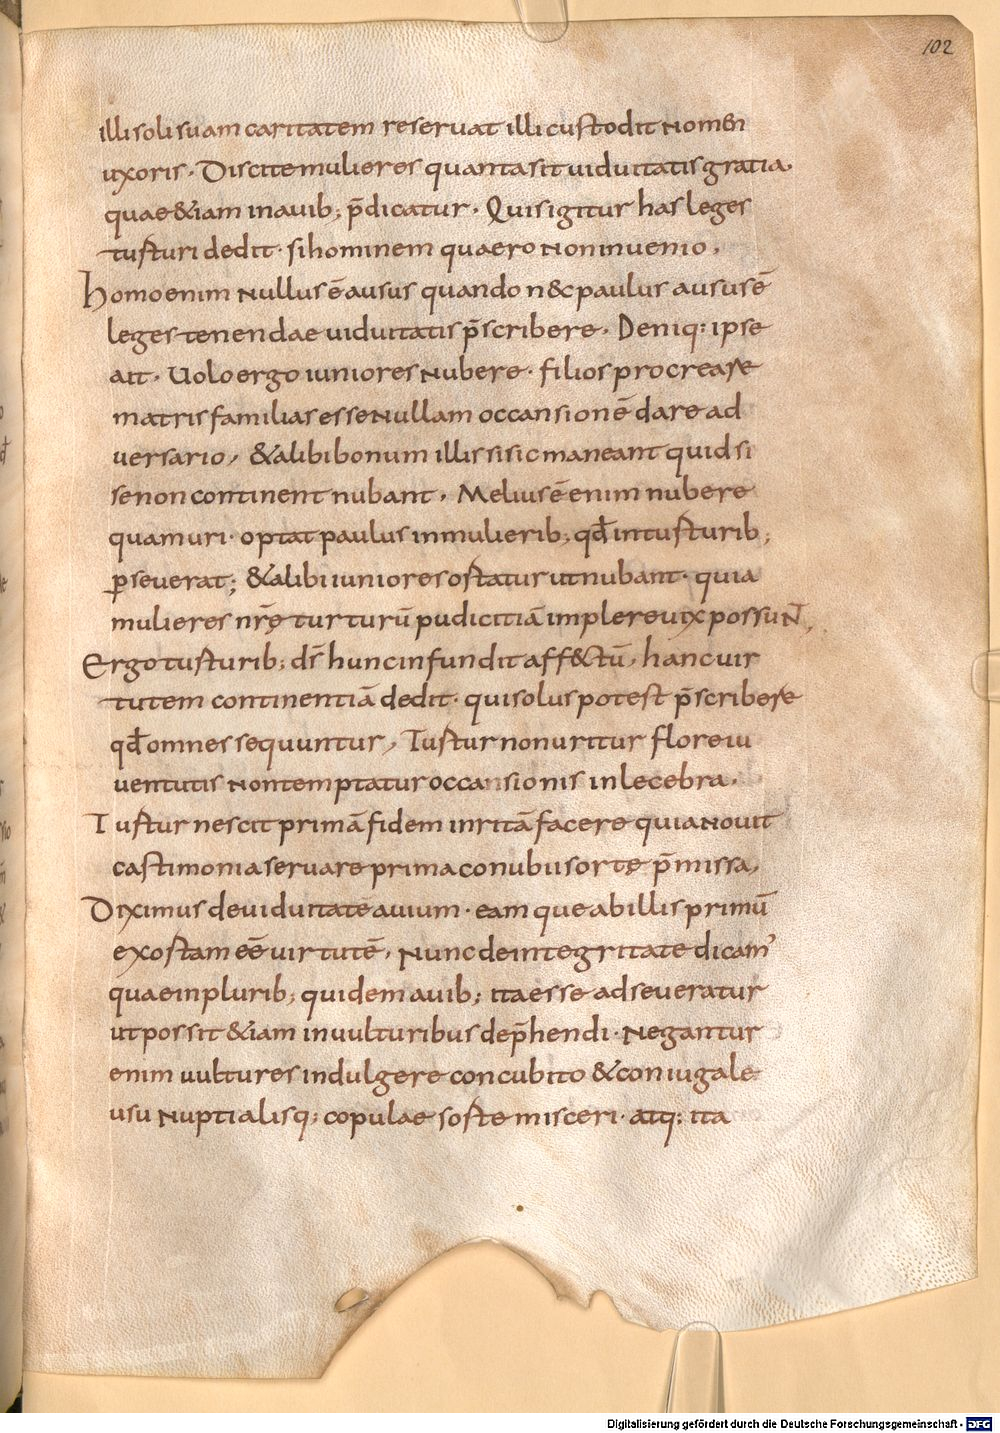 102
illi soli suam caritatem reseruat illi custodit nomen
uxoris· Discite mulieres quanta sit uiduitatis gratia·
quae &iam in auib; p̄dicatur· Quis igitur has leges
tusturi dedit· si hominem quaero non inuenio,
homo enim nullus ē ausus quando n&c paulus ausus ē
leges tenendae uiduitatis p̄scribere· Deniq: ipse
ait· Uolo ergo iuniores nubere· filios procreare
matris familias esse nullam occansionē dare ad
uersario, &alibi bonum illis si sic maneant quid si
se non continent nubant· Melius ē enim nubere
quam uri· optat paulus in mulierib; qđ in tusturib;
ꝑseuerat; &alibi iuniores ostatur ut nubant· quia
mulieres nr̄ę turturū pudicitiā implere uix possunt,
Ergo tusturib; ds̄ hunc infundit aff&tū, hanc uir
tutem continentiā dedit· qui solus potest p̄scribere
qđ omnes sequuntur, Tustur non uritur flore iu
uentutis non temptatur occansionis inlecebra·
Tustur nescit primā fidem inritā facere quia nouit
castimonia seruare prima conubii sorte p̄missa,
Diximus de uiduitate auium· eam que ab illis primū
exostam eē uirtutē, Nunc de integritate dicam'
quae in plurib; quidem auib; ita esse adseueratur
ut possit &iam in uulturibus dep̄hendi· Negantur
enim uultures indulgere concubito &coniugale
usu nuptialisq; copulae soste misceri· atq: ita
Digitalisierung gefördert durch die Deutsche Forschungsgemeinschaft - DFG